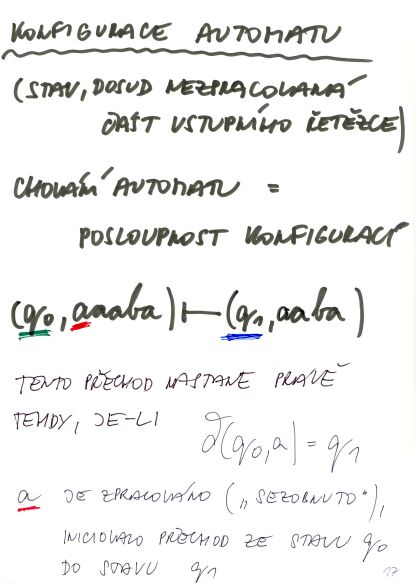 KONFIGURACE AUTOMATU
(STAV, DOSUD NEZPRACOVANÁ
ČÁST VSTUPNÍHO ŘETĚZCE)
CHOVÁNÍ AUTOMATU =
POSLOUPNOST KONFIGURACÍ
(q0, aaaba) ⊢ (q1, aaba)
TENTO PŘECHOD NASTANE PRÁVĚ
TEHDY, JE-LI
δ(q0, a) = q1
a JE ZPRACOVÁNO („SEZOBNUTO“),
INICIOVALO PŘECHOD ZE STAVU q0
DO STAVU q1
17